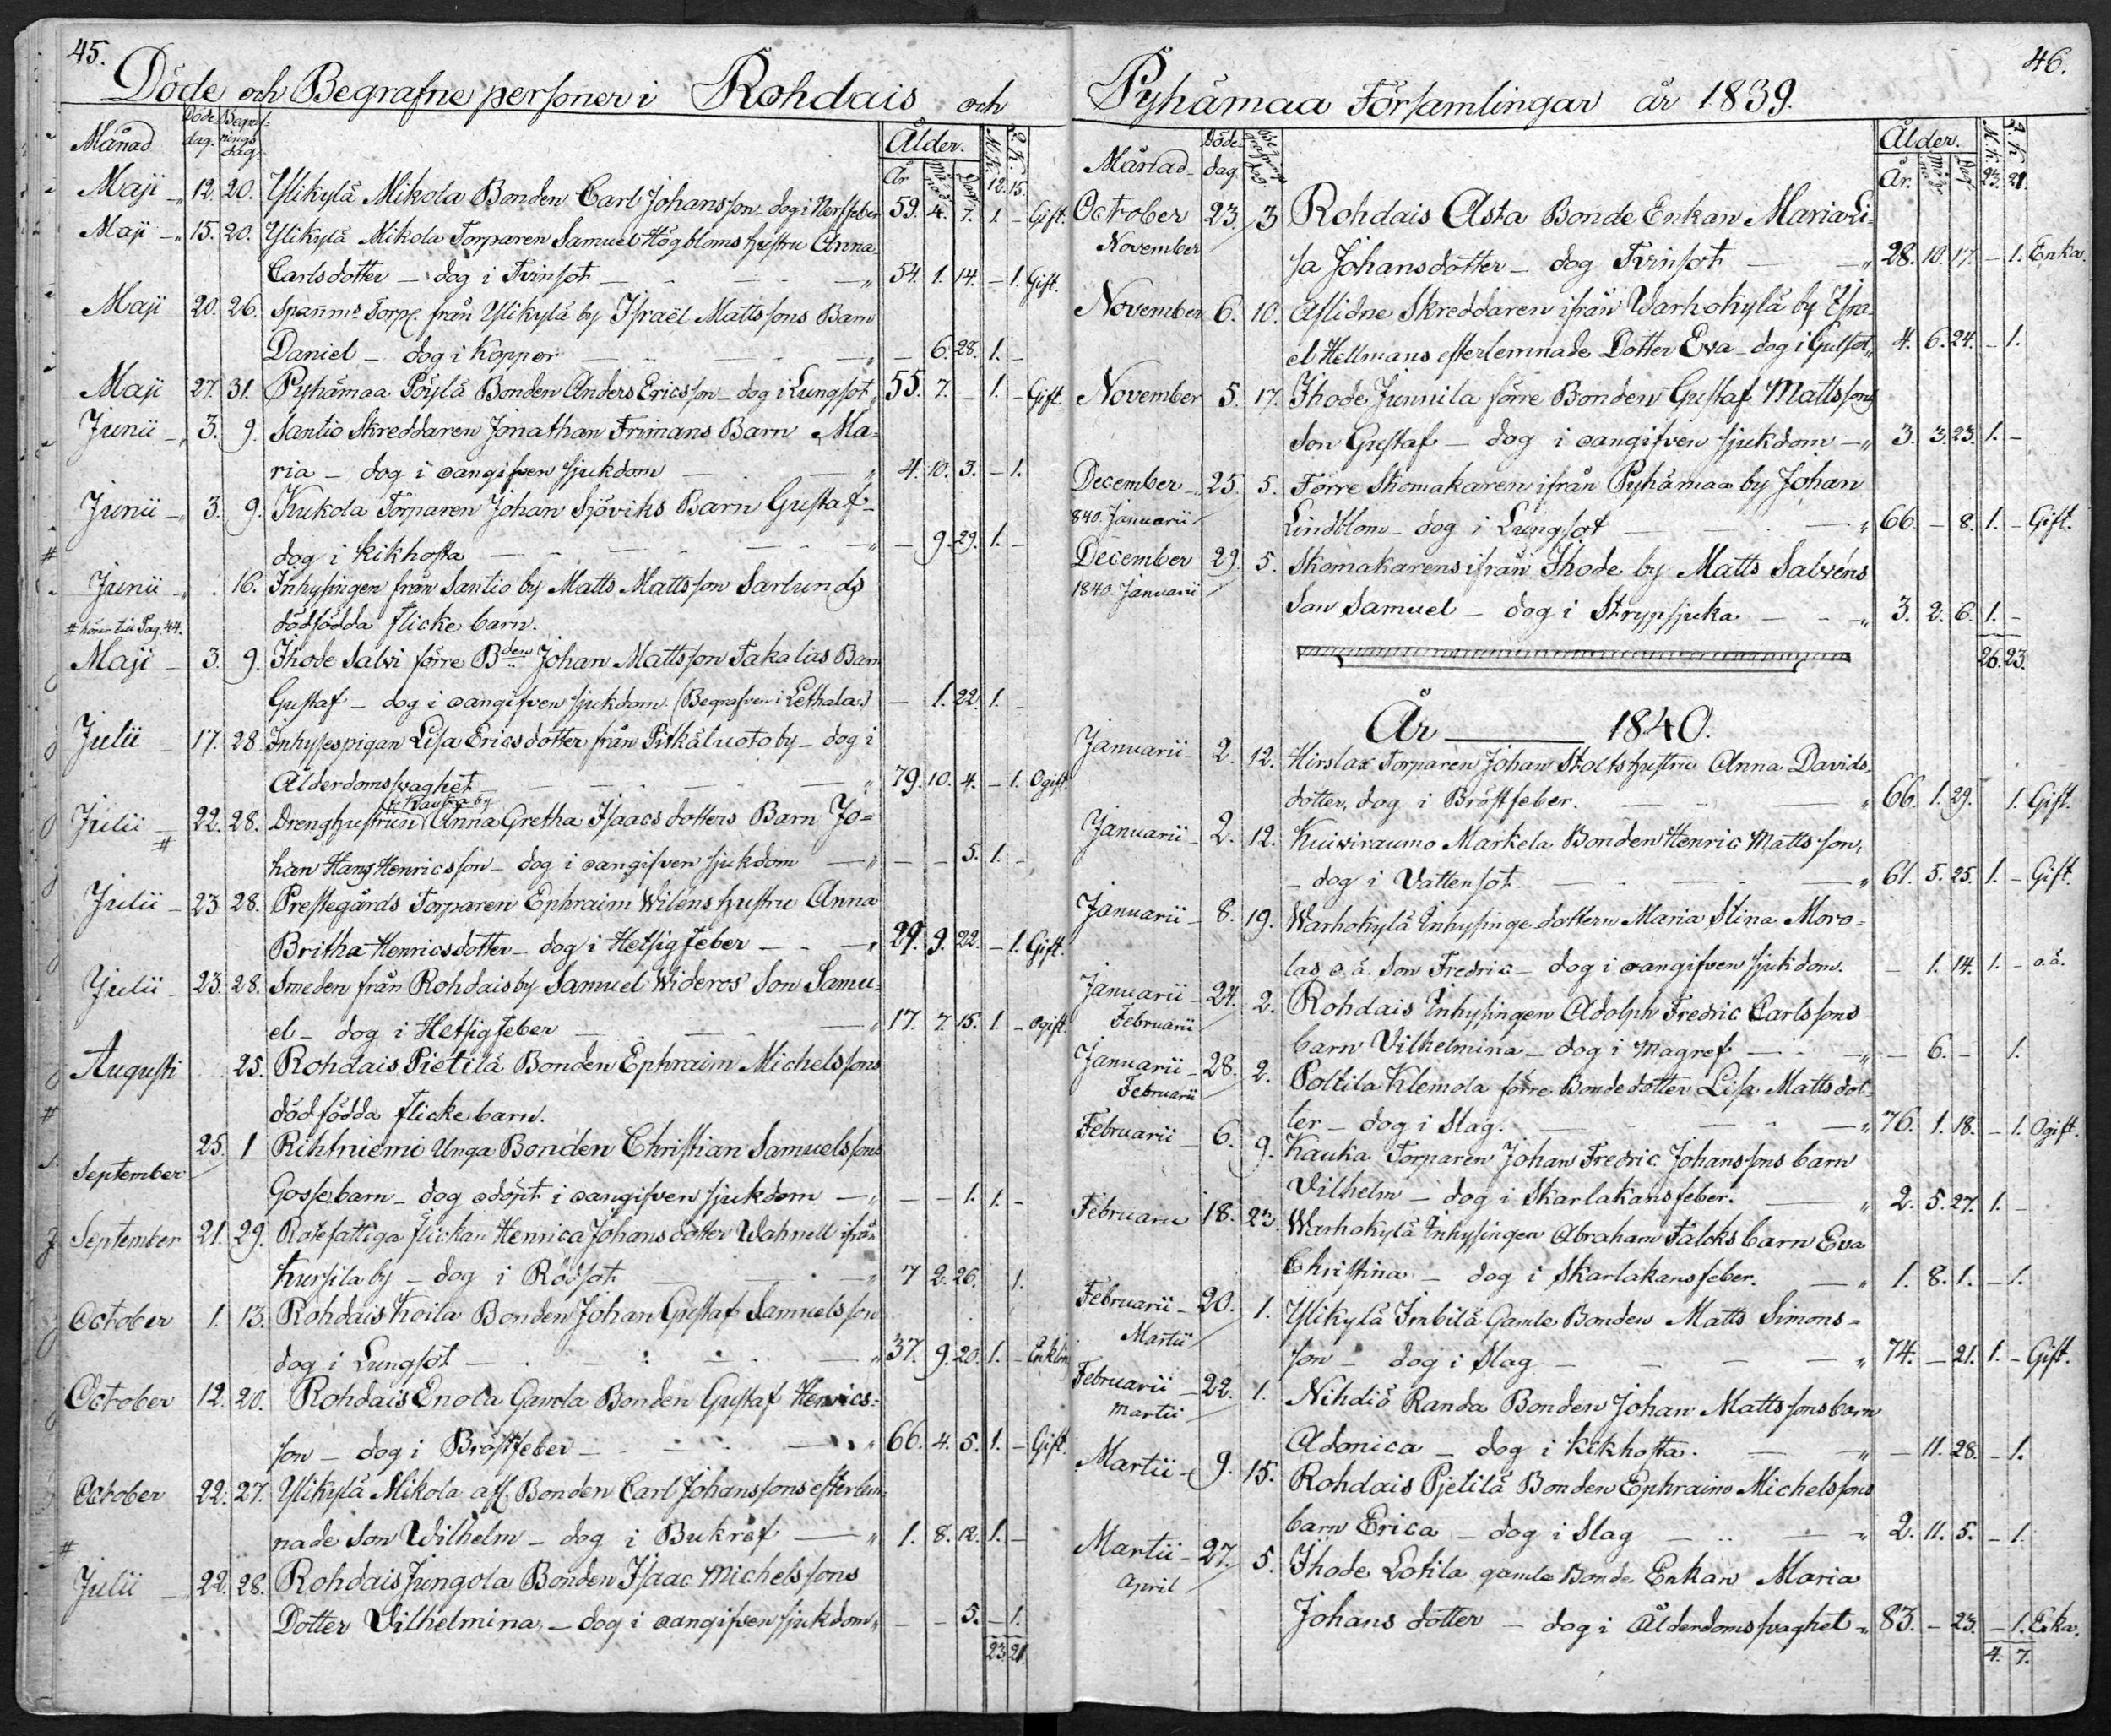 45.
Döde och Begrafne personer i Rohdais och
Månad Döde dag. Begrafnings dag. Ålder. År Månad Dag M.K. Q.K.
12. 15.
Maji 12. 20. Ylikylä Mikola Bonden Carl Johansson dog i Nerffeber 59. 4. 7. 1. - Gift.
Maji 15. 20. Ylikylä Mikola Torparen Samuel Högbloms hustru Anna
Carlsdotter - dog i Tvinsot 54. 1. 14. - 1. Gift.
Maji 20. 26. Spannms Torp. från Ylikylä by Israël Mattssons Barn
Daniel - dog i Koppor - 6. 28. 1. -
Maji 27. 31. Pyhämaa Pöylä Bonden Anders Ericsson - dog i Lungsot 55. 7. - 1. - Gift.
Junii 3. 9. Santio Skreddaren Jonathan Frimans Barn Ma=
ria - dog i oangifven sjukdom 4. 10. 3. - 1.
Junii 3. 9. Kukola Torparen Johan Sjöviks Barn Gustaf -
# dog i Kikhosta - 9. 29. 1. -
Junii 16. Inhysingen från Santio by Matts Mattsson Sarlunds
# hörer till Pag. 44. dödfödda flicke barn.
Maji 3. 9. Ihode Salvi förre Bden Johan Mattsson Takalas Barn
Gustaf - dog i oangifven sjukdom. (Begrafven i Lethala.) - 1. 22. 1. -
Julii 17. 28 Inhysespigan Lisa Ericsdotter från Pitkäluoto by - dog i
Ålderdomsvaghet 79. 10. 4. - 1. Ogift.
fr. Kauka by
Julii # 22. 28. Drenghustrun Anna Gretha Isaacsdotters Barn Jo=
han Hans Henricsson - dog i oangifven sjukdom - - 5. 1. -
Julii 23 28. Prestegårds Torparen Ephraim Wilens hustru Anna
Britha Henricsdotter - dog i Hetsigfeber 29. 9. 22. - 1. Gift.
Julii 23. 28. Smeden från Rohdais by Samuel Wideros' Son Samu=
el - dog i Hetsigfeber 17. 7. 15. 1. - Ogift.
Augusti 25. Rohdais Pietilä Bonden Ephraim Michelssons
# dödfödda flicke barn.
September 25. 1 Rihtniemi Unga Bonden Christian Samuelssons
Gossebarn - dog odöpt i oangifven sjukdom - - 1. 1. -
September 21. 29. Rotefattiga flickan Henrica Johansdotter Wahnell ifrån
Kursila by - dog i Rödsot 7 2. 26. 1.
October 1. 13. Rohdais Koila Bonden Johan Gustaf Samuelsson
dog i Lungsot 37. 9. 20. 1. - Enkling
October 12. 20. Rohdais Enola Gamla Bonden Gustaf Henrics=
son - dog i Bröstfeber 66. 4. 5. 1. - Gift.
October 22. 27. Ylikylä Mikola afl. Bonden Carl Johanssons efterlem=
# nade Son Wilhelm - dog i Bukref 1. 8. 12. 1. -
Julii 22. 28. Rohdais Jungola Bonden Isaac Michelssons
Dotter Vilhelmina, - dog i oangifven sjukdom - - 5. - 1.
23. 21.
46.
Pyhämaa Församlingar år 1839.
Månad Döde dag. Begrafn. dag. Ålder. År. Månad Dag M.K. Q.K.
23. 21.
October 23. 3 Rohdais Asta Bonde Enkan Maria Li=
November sa Johansdotter - dog Tvinsot 28. 10. 17. - 1. Enka.
November 6. 10. Aflidne Skreddaren ifrån Warhokylä by Isra=
el Hellmans efterlemnade Dotter Eva - dog i Gulsot 4. 6. 24. - 1.
November 5. 17. Ihode Junnila förre Bonden Gustaf Mattssons
Son Gustaf - dog i oangifven sjukdom 3. 3. 23. 1. -
December 25. 5. Förre Skomakaren ifrån Pyhämaa by Johan
840. Januarii Lindblom - dog i Lungsot 66. - 8. 1. - Gift.
December 29. 5. Skomakarens ifrån Ihode by Matts Salvens
1840. Januarii Son Samuel - dog i Strypsjuka 3. 2. 6. 1. -
26. 23.
År 1840.
Januarii 2. 12. Hirslax Torparen Johan Stolts hustru Anna Davids=
dotter, dog i Bröstfeber. 66. 1. 29. 1. Gift.
Januarii 2. 12. Kuiviraumo Markela Bonden Henric Mattsson,
- dog i Vattensot. 61. 5. 25. 1. - Gift.
Januarii 8. 19. Warhokylä Inhysinge dottern Maria Stina Moro=
las o.ä. Son Fredric - dog i oangifven sjukdom. - 1. 14. 1. - o.ä.
Januarii 24. 2. Rohdais Inhysingen Adolph Fredric Carlssons
Februarii barn Vilhelmina - dog i Magref - 6. - 1.
Januarii 28. 2. Poltila Klemola förre Bondedotter Lisa Mattsdot=
Februarii ter - dog i Slag. 76. 1. 18. - 1. Ogift.
Februarii 6. 9. Kauka Torparen Johan Fredric Johanssons barn
Vilhelm - dog i Skarlakansfeber. 2. 5. 27. 1. -
Februarii 18. 23. Warhokylä Inhysingen Abraham Falcks barn Eva
Christina - dog i Skarlakansfeber. 1. 8. 1. - 1.
Februarii 20. 1. Ylikylä Imbilä Gamle Bonden Matts Simons=
Martii son - dog i Slag 74. - 21. 1. - Gift.
Februarii 22. 1. Nihdiö Randa Bonden Johan Mattssons barn
Martii Adonica - dog i Kikhosta. - 11. 28. - 1.
Martii 9. 15. Rohdais Pjetilä Bonden Ephraim Michelssons
barn Erica - dog i Slag 2. 11. 5. - 1.
Martii 27. 5. Ihode Lotila gamla Bonde Enkan Maria
April Johans dotter - dog i Ålderdomsvaghet 83. - 23. - 1. Enka.
4. 7.